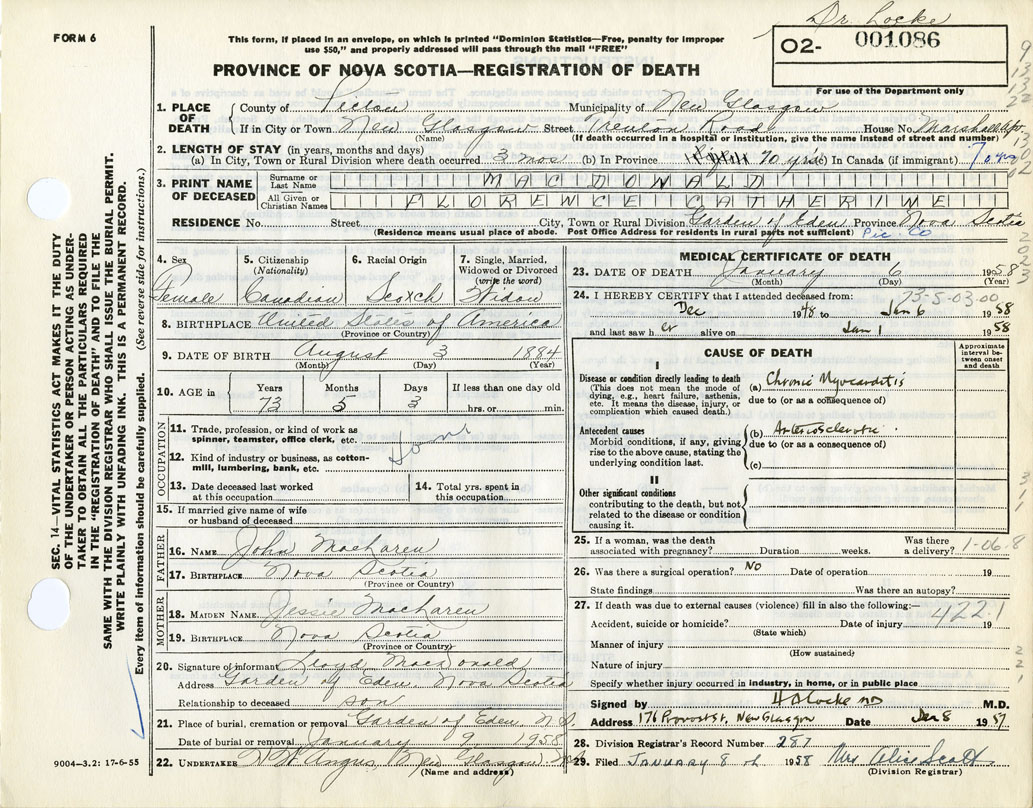 Dr. Locke
FORM 6
This form, if placed in an envelope, on which is printed "Dominion Statistics—Free, penalty for improper
use $50," and properly addressed will pass through the mail "FREE"
02- 001086
For use of the Department only
PROVINCE OF NOVA SCOTIA—REGISTRATION OF DEATH
1. PLACE OF DEATH
County of Pictou Municipality of New Glasgow
If in City or Town New Glasgow Street Trenton Road House No. Marshall
(If death occurred in a hospital or institution, give the name instead of street and number)
2. LENGTH OF STAY (in years, months and days)
(a) In City, Town or Rural Division where death occurred 3 mos (b) In Province 70 yrs (c) In Canada (if immigrant) 70 yrs
3. PRINT NAME OF DECEASED
Surname or Last Name MACDONALD
All Given or Christian Names FLORENCE CATHERINE
RESIDENCE No. Street City, Town or Rural Division Garden of Eden Province Nova Scotia
(Residence means usual place of abode. Post Office Address for residents in rural parts not sufficient) Pic. Co
4. Sex
Female
5. Citizenship (Nationality)
Canadian
6. Racial Origin
Scotch
7. Single, Married, Widowed or Divorced (write the word)
Widow
8. BIRTHPLACE United States of America
(Province or Country)
9. DATE OF BIRTH August 3 1884
(Month) (Day) (Year)
10. AGE in Years Months Days If less than one day old
73 5 3 hrs. or min.
OCCUPATION
11. Trade, profession, or kind of work as
spinner, teamster, office clerk, etc.
12. Kind of industry or business, as cotton-
mill, lumbering, bank, etc.
13. Date deceased last worked
at this occupation
14. Total yrs. spent in
this occupation
15. If married give name of wife
or husband of deceased
FATHER
16. NAME John MacLaren
17. BIRTHPLACE Nova Scotia
(Province or Country)
MOTHER
18. MAIDEN NAME Jessie MacLaren
19. BIRTHPLACE Nova Scotia
(Province or Country)
20. Signature of informant Lloyd MacDonald
Address Garden of Eden, Nova Scotia
Relationship to deceased son
21. Place of burial, cremation or removal Garden of Eden, N.S.
Date of burial or removal January 9 1958
22. UNDERTAKER H W Angus, New Glasgow
(Name and address)
MEDICAL CERTIFICATE OF DEATH
23. DATE OF DEATH January 6 1958
(Month) (Day) (Year)
73-5-03-00
24. I HEREBY CERTIFY that I attended deceased from:
Dec 1948 to Jan 6 1958
and last saw her alive on Jan 1 1958
CAUSE OF DEATH
Approximate interval between onset and death
I
Disease or condition directly leading to death
(This does not mean the mode of
dying, e.g., heart failure, asthenia,
etc. It means the disease, injury, or
complication which caused death.)
(a) Chronic Myocarditis
due to (or as a consequence of)
Antecedent causes
Morbid conditions, if any, giving
rise to the above cause, stating the
underlying condition last.
(b) Arteriosclerotic
due to (or as a consequence of)
(c)
II
Other significant conditions
contributing to the death, but not
related to the disease or condition
causing it.
25. If a woman, was the death
associated with pregnancy? Duration weeks. Was there a delivery?
26. Was there a surgical operation? NO Date of operation 19
State findings Was there an autopsy?
27. If death was due to external causes (violence) fill in also the following:—
Accident, suicide or homicide? Date of injury 19
4221
(State which)
Manner of injury
(How sustained)
Nature of injury
Specify whether injury occurred in industry, in home, or in public place
Signed by H D Locke MD M.D.
Address 176 Provost St, New Glasgow Date Jan 8 1957
28. Division Registrar's Record Number 287
29. Filed JANUARY 8 th 1958 Mrs Alice Scott
(Division Registrar)
SEC. 14—VITAL STATISTICS ACT MAKES IT THE DUTY
OF THE UNDERTAKER OR PERSON ACTING AS UNDER-
TAKER TO OBTAIN ALL THE PARTICULARS REQUIRED
IN THE "REGISTRATION OF DEATH" AND TO FILE THE
SAME WITH THE DIVISION REGISTRAR WHO SHALL ISSUE THE BURIAL PERMIT.
WRITE PLAINLY WITH UNFADING INK. THIS IS A PERMANENT RECORD.
Every item of information should be carefully supplied. (See reverse side for instructions.)
9004-3.2: 17-6-55